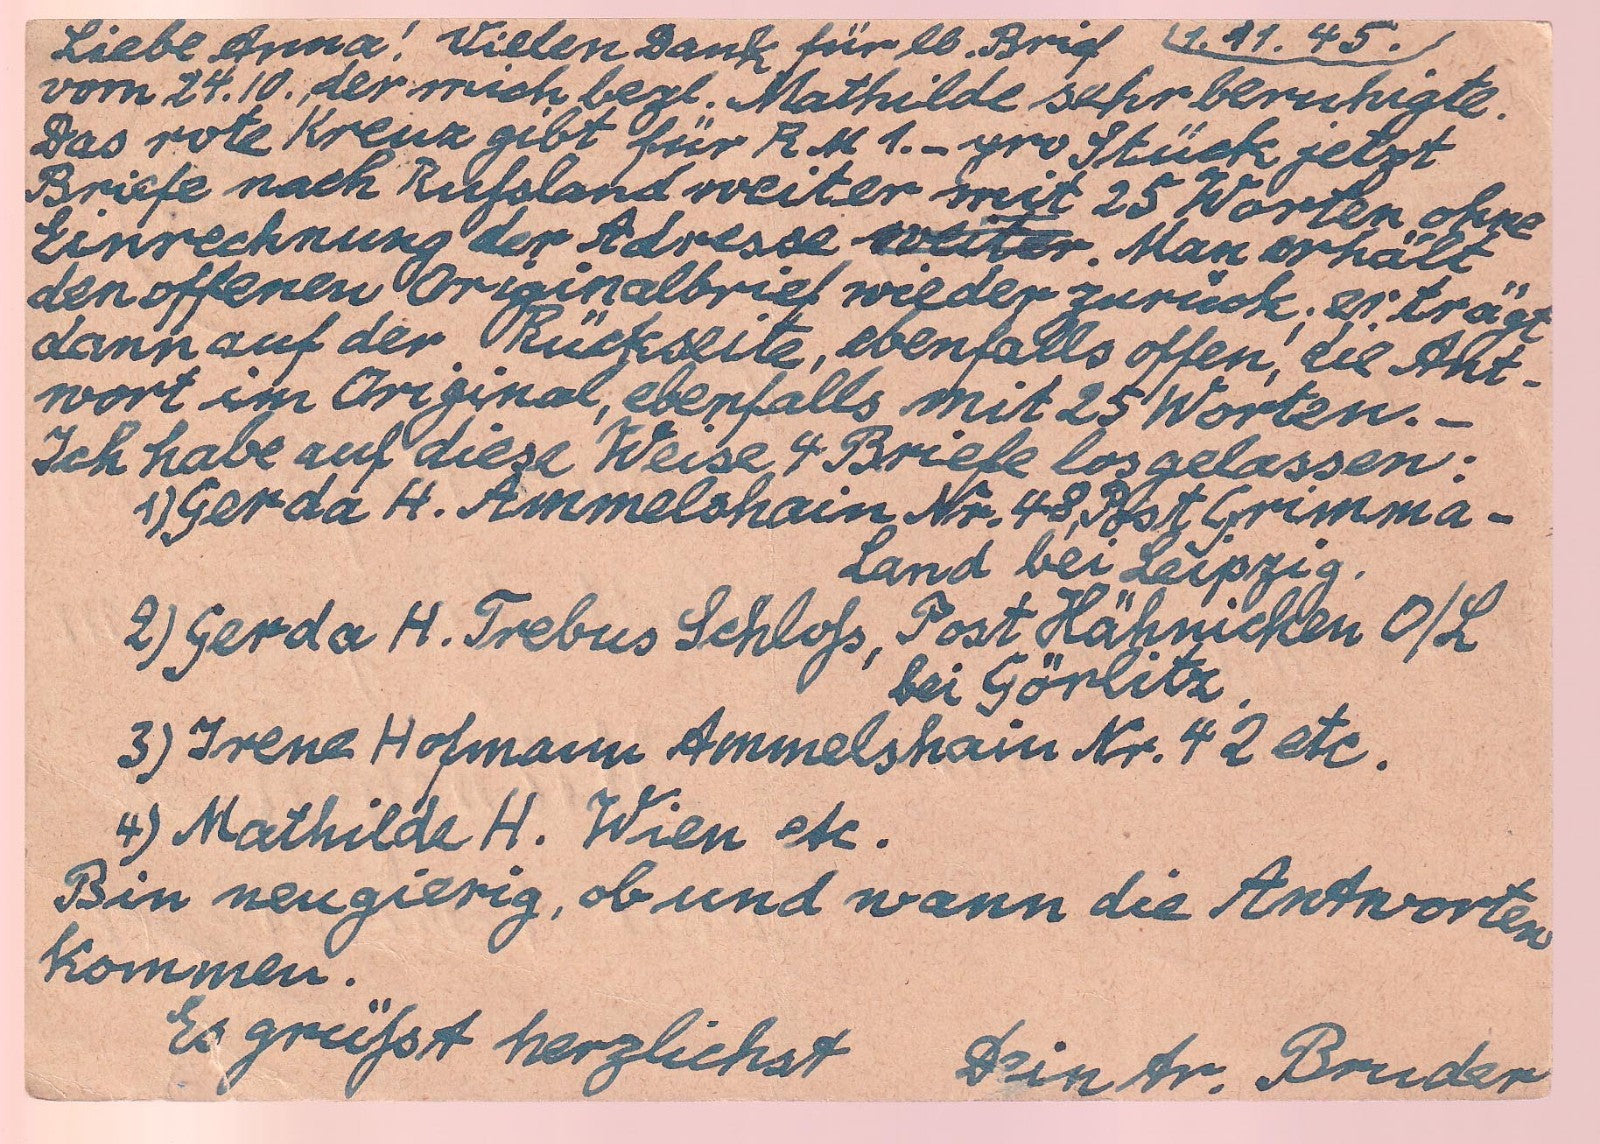 Liebe Anna! Vielen Dank für lb. Brief 1.11.45.
vom 24.10., der mich bezl. Mathilde sehr beruhigte.
Das rote Kreuz gibt für RM 1.- pro Stück jetzt
Briefe nach Rußland weiter mit 25 Worten ohne
Einrechnung der Adresse weiter. Man erhält
den offenen Originalbrief wieder zurück; er trägt
dann auf der Rückseite, ebenfalls offen, die Ant-
wort im Original, ebenfalls mit 25 Worten. -
Ich habe auf diese Weise 4 Briefe losgelassen:
1) Gerda H. Ammelshain Nr. 48, Post Grimma-
Land bei Leipzig.
2) Gerda H. Trebus Schloß, Post Hähnichen O/L
bei Görlitz.
3) Irene Hofmann Ammelshain Nr. 42 etc.
4) Mathilde H. Wien etc.
Bin neugierig, ob und wann die Antworten
kommen.
Es grüßst herzlichst Dein tr. Bruder